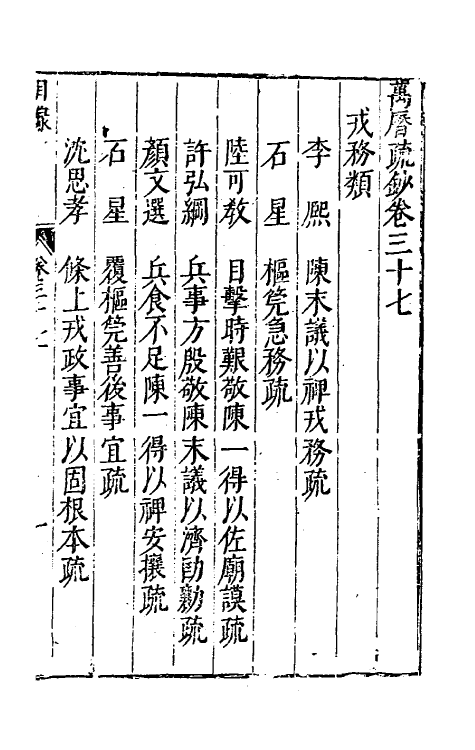 萬曆疏鈔卷三十七
戎務類
李熈 陳末議以裨戎務疏
石星 樞筦急務疏
陸可敎 目擊時艱敬陳一得以佐廟謨疏
許弘綱 兵事方殷敬陳末議以濟勘勦疏
顏文選 兵食不足陳一得以裨安攘疏
石星 覆樞筦善後事宜疏
沈思孝 條上戎政事宜以固根本疏
目錄 卷三十七 一